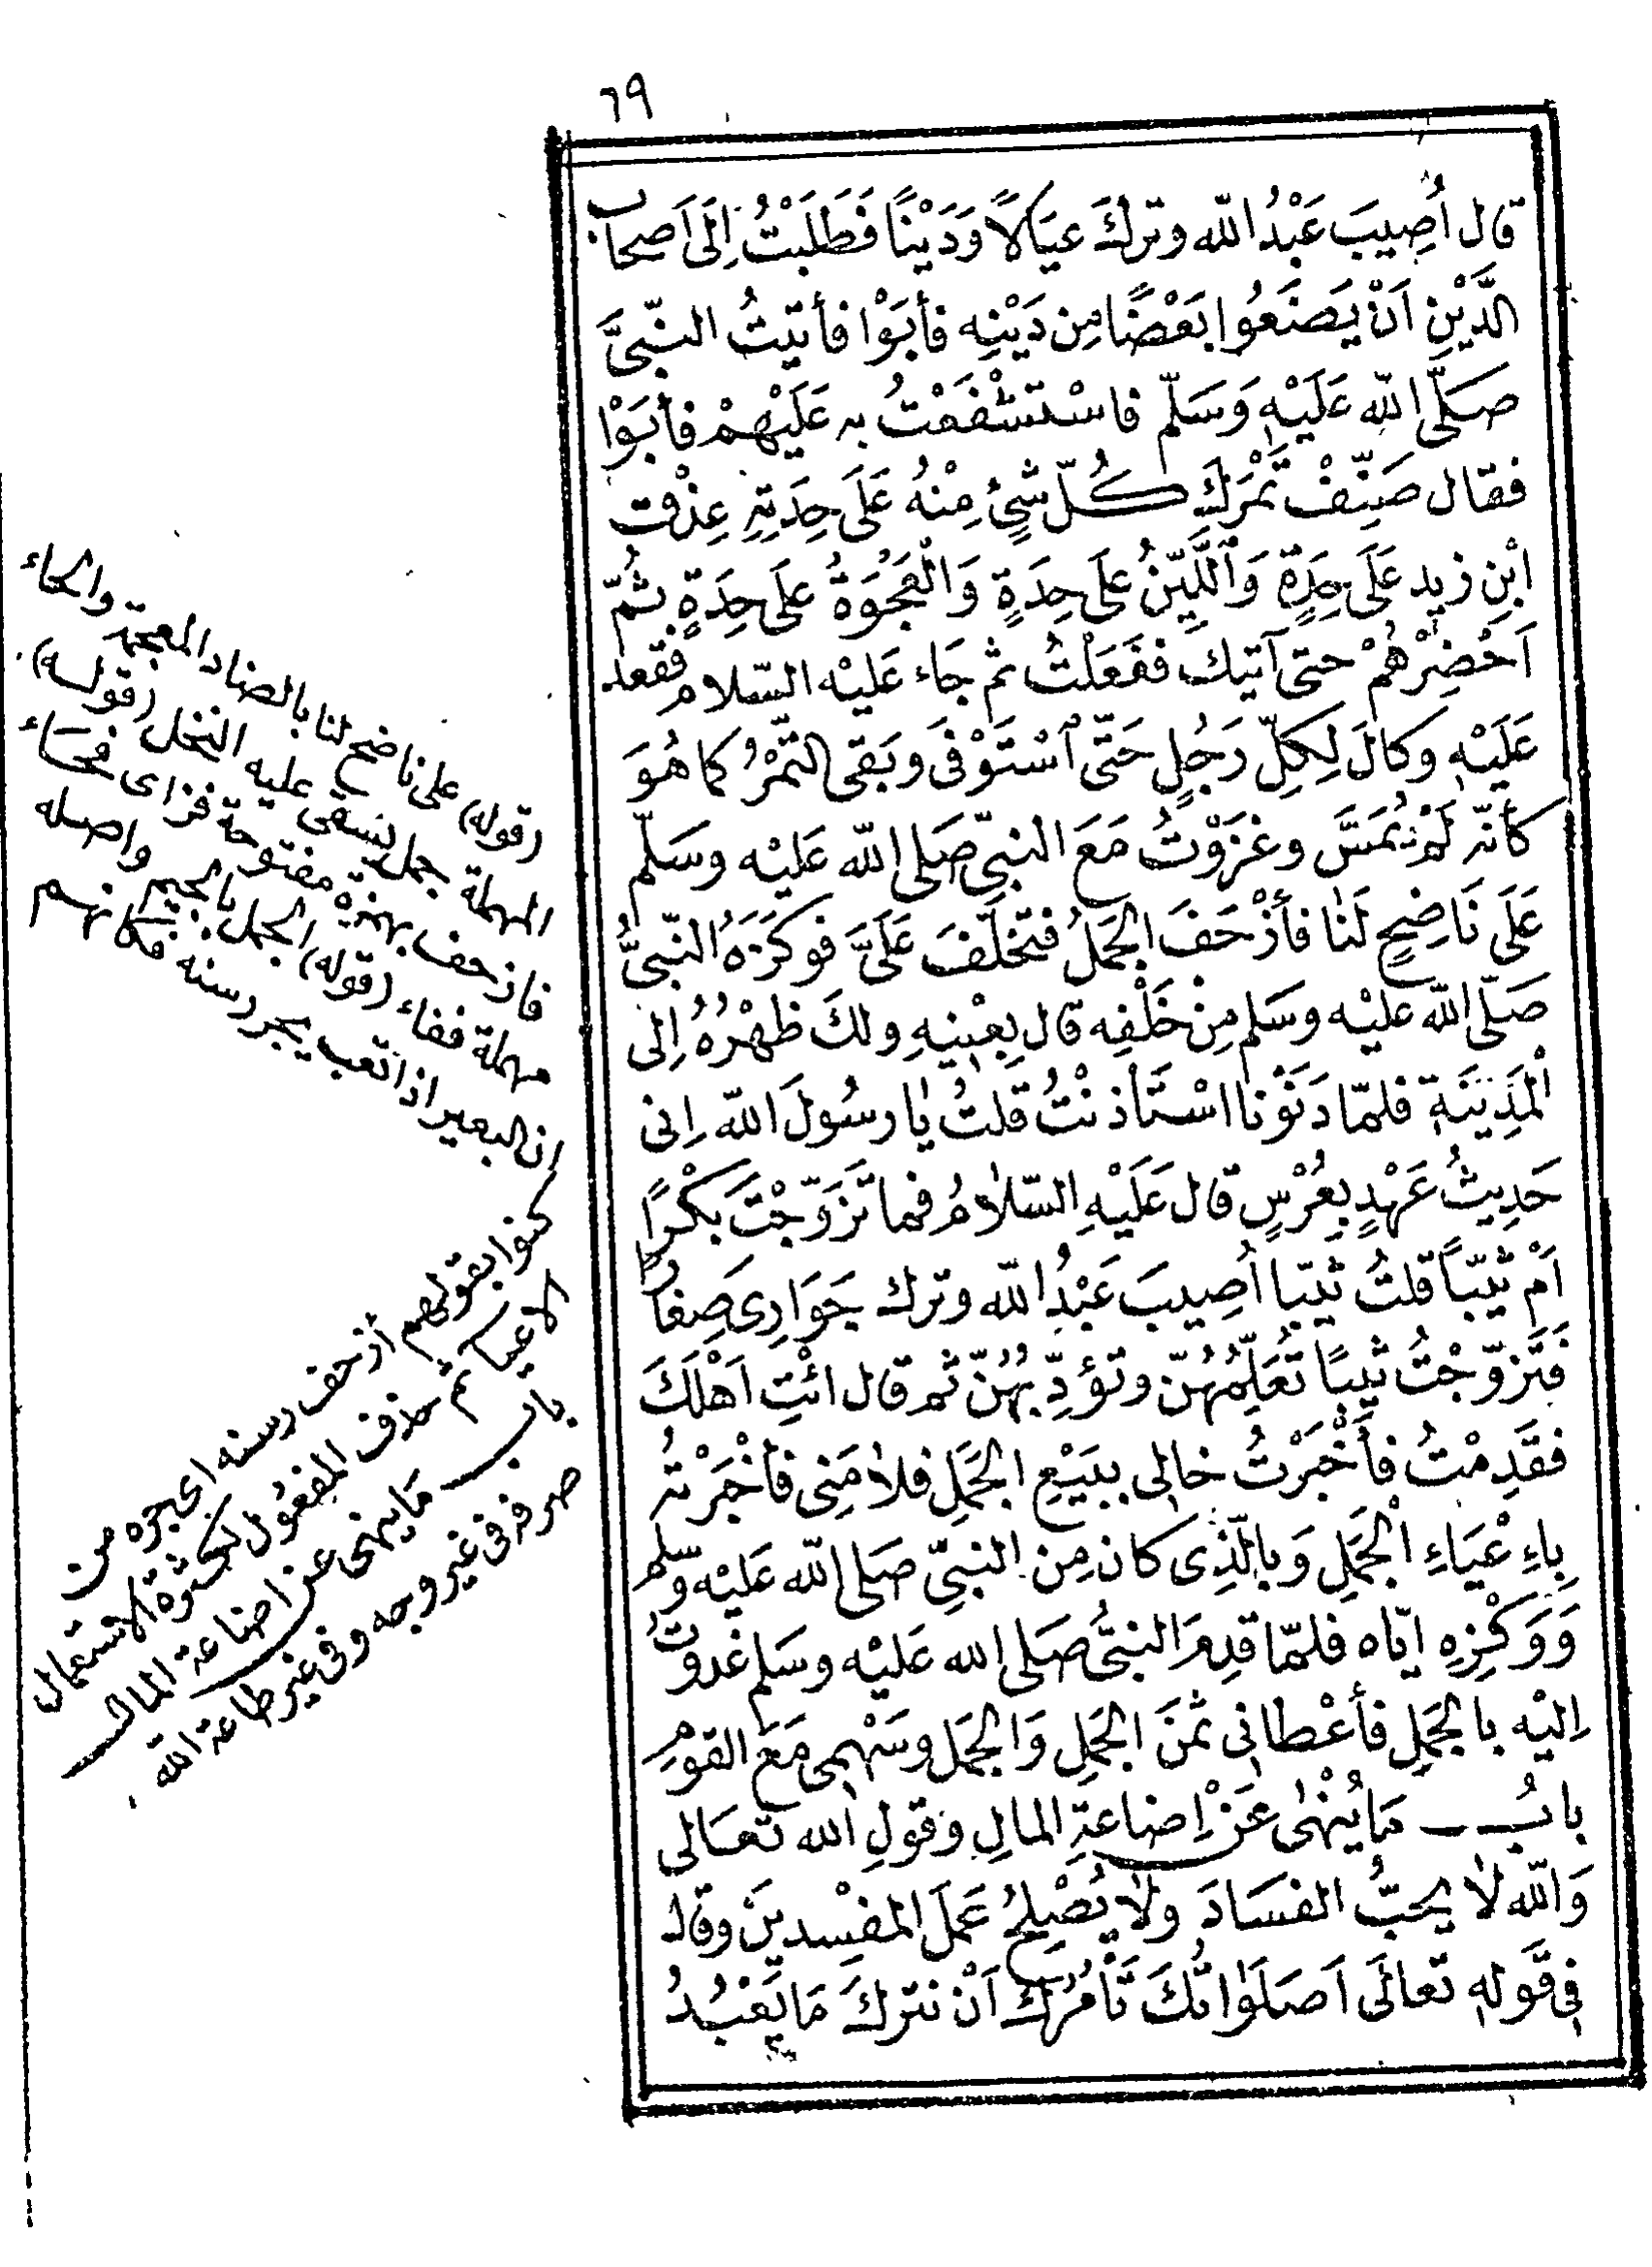 ٦٩
قال اُصِيبَ عَبْدُ الله وترك عيَالاً وَدَيْنًا فَطَلَبْتُ اِلَى اَصحاب
الدَّيْنِ اَنْ يَضَعُوا بَعْضًا مِن دَيْنِه فأبَوْا فأتيتُ النّبىَّ
صَلَّى الله عَلَيْهِ وَسَلّم فاسْتشْفَعْتُ به عَلَيْهِمْ فأبَوْا
فقال صَنِّفْ تَمْرَكَ كُلّ شَئٍ مِنْهُ عَلَى حِدَتِهِ عِذْقَ
ابْنِ زيد عَلَى حِدَةٍ وَاللِّينُ عَلَى حِدَةٍ وَالْعَجْوَةُ عَلَى حِدَةٍ ثُمّ
اَحْضِرْهُمْ حتى آتيك ففعَلْتُ ثم جَاء عَليْه السّلام فقعد
عَلَيْهِ وكالَ لِكلِّ رَجُلٍ حَتّى اسْتَوْفَى وبَقى التّمْرُ كما هُوَ
كأنّه لَمْ يُمَسَّ وغزَوْتُ مَعَ النبىّ صَلى الله عَليْه وسَلّم
عَلَى نَاضِحٍ لَنَا فأزْحَفَ الجَملُ فتخلّفَ عَلَىَّ فوكزَهُ النّبىُّ
صَلّى الله عليْه وسَلم مِنْ خَلْفِه قال بِعْنِيهِ ولكَ ظَهْرُهُ اِلى
الْمَدِينَةِ فلمّا دَنَوْنا اسْتَأذنْتُ قلتُ يا رسُولَ الله اِنى
حَدِيثُ عَهْدٍ بِعُرْسٍ قال عَلَيْهِ السّلامُ فما تزَوّجْتَ بَكْرًا
اَمْ ثيّباً قلتُ ثيّبا اُصِيبَ عَبْدُ الله وترك جَوَارِى صِغارًا
فَتزوّجْتُ ثيبًا تُعَلِّمُهُنّ وتؤدِّبُهُنّ ثم قال ائْتِ اَهْلَكَ
فقَدِمْتُ فأَخْبَرْتُ خالى ببَيْعِ الجَمَلِ فلامَنِى فأخْبَرْته
بِاِءِعْيَاءِ الْجَمَلِ وَبالّذِى كان مِن النبىِّ صَلى الله عَليْه وسلم
وَوَكْزِهِ ايّاه فلمّا قدِمَ النبىُّ صَلى الله عَليْه وسَلم غدوتُ
اِليْه بالجَمَلِ فأعْطانى ثمَنَ الجَمَلِ وَالجَمَلَ وسَهْمِى مَعَ القومِ
بابُ مَا يُنْهٰى عَنْ اِضاعَةِ المالِ وقولِ الله تعَالى
وَالله لا يحبُّ الفسَادَ ولا يُصْلِحُ عَمَلَ المفْسِدينَ وقال
فى قَوله تعالَى اَصَلَوَاتُكَ تَأمُرُكَ اَنْ نترُكَ مَا يَعْبُدُ
(قوله) على ناضح لنا بالضاد المعجمة والحاء
المهملة جمل يسقى عليه النخل (قوله)
فازحف بهمزة مفتوحة فزاى فحاء
مهملة ففاء (قوله) الجمل بالجيم واصله
ان البعير اذا تعب يجر رسنه فكانهم
كنوا بقولهم أزحف رسنه اى جره من
الاعياء ثم حذف المفعول لكثرة الاستعمال
باب ما ينهى عن اضاعة المال
صرفه فى غير وجهه وفى غير طاعة الله